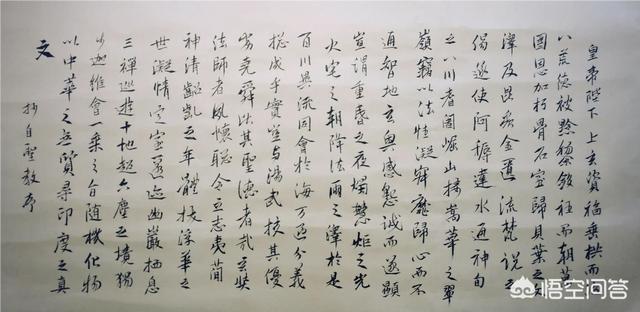 皇帝陛下上玄資福垂拱而治
八荒德被黔黎斂衽而朝萬
國恩加朽骨石室歸貝葉之文
澤及昆虫金匱流梵說之
偈遂使阿耨達水通神甸
之八川耆闍崛山接嵩華之翠
嶺竊以法性凝寂靡歸心而不
通智地玄奧感懇誠而遂顯
豈謂重昏之夜燭慧炬之光
火宅之朝降法雨之澤於是
百川異流同會於海万區分義
總成乎實豈與湯武校其優
劣堯舜比其聖德者哉玄奘
法師者夙懷聰令立志夷簡
神清齠齔之年體拔浮華之
世凝情定室匿迹幽巖栖息
三禪巡遊十地超六塵之境獨
步迦維會一乘之旨隨機化物
以中華之無質尋印度之真
文
抄自聖教序
悟空问答